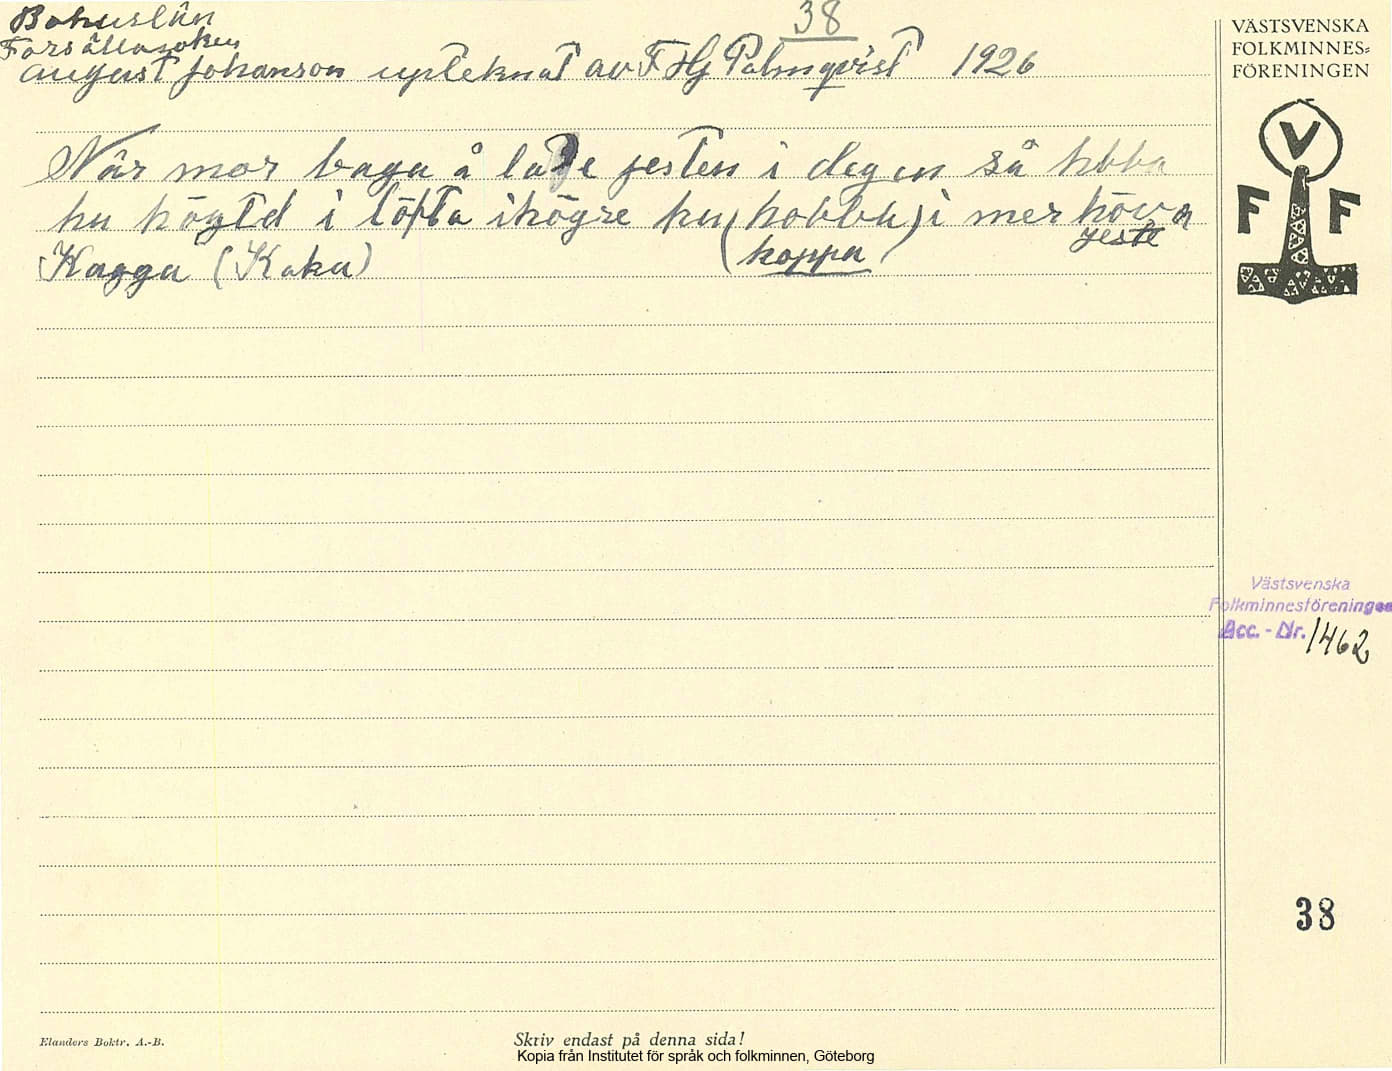 38
Bohuslän
Forsällasoken
August Johanson upteknat av F Hj Palmqvist 1926
När mor baga å la je jesten i degen så hbba
hu högtd i löfta ihögre hu (hobba) i mer höva
jeste
Kagga (Kaka) (hoppa)
VÄSTSVENSKA
FOLKMINNES=
FÖRENINGEN
V
F F
Västsvenska
Folkminnesföreningen
Acc. - Nr. 1462
38
Elanders Boktr. A.-B.
Skriv endast på denna sida!
Kopia från Institutet för språk och folkminnen, Göteborg